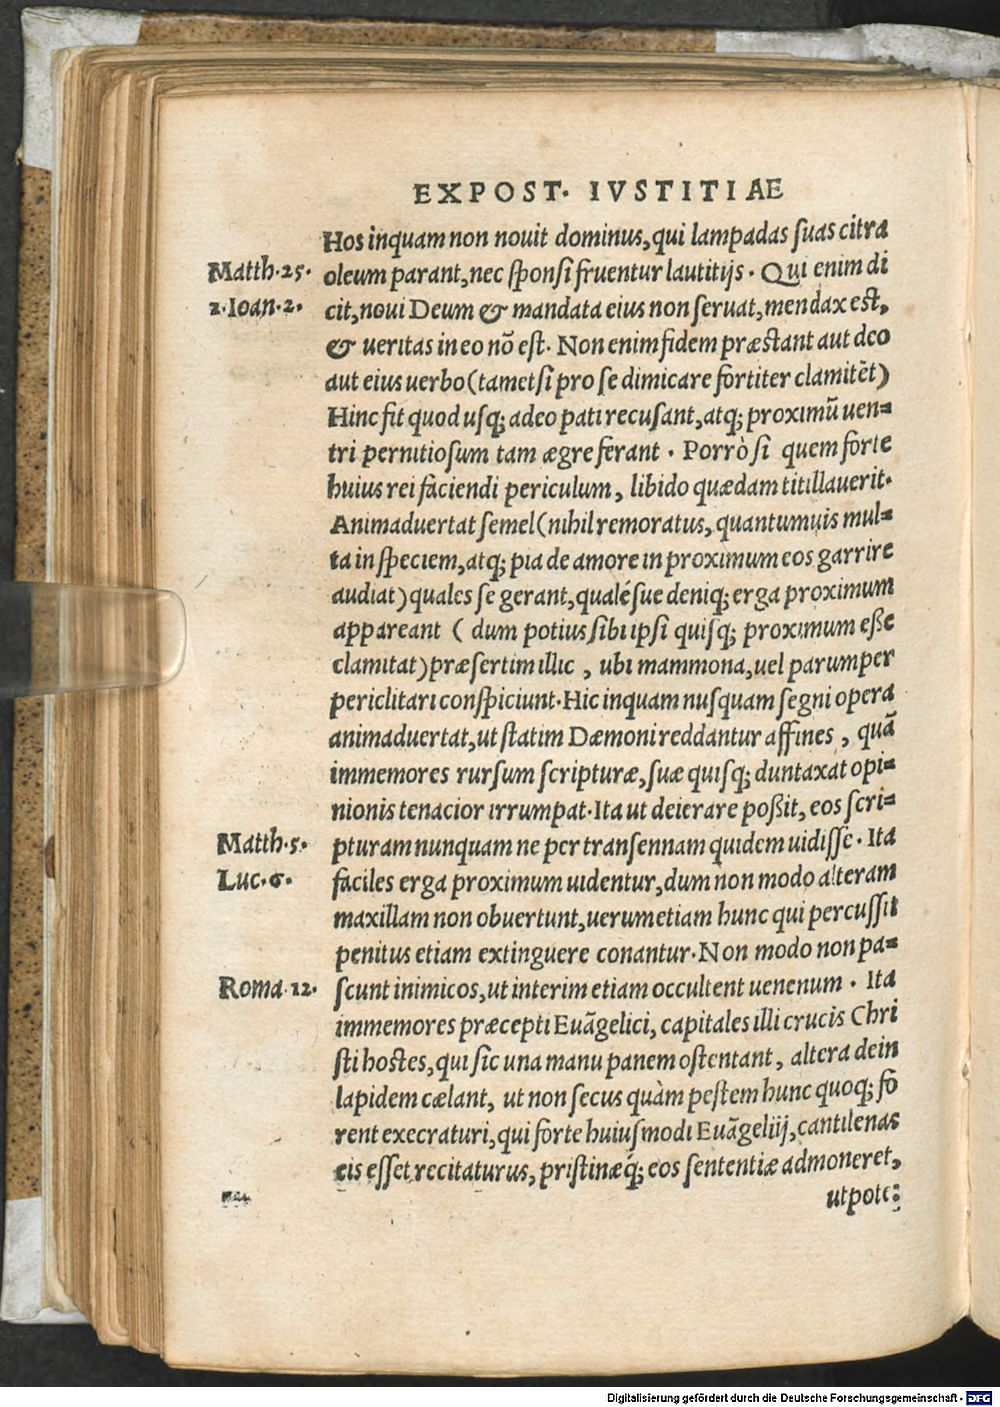 EXPOST. IVSTITIAE
Hos inquam non nouit dominus, qui lampadas suas citra
Matth.25. oleum parant, nec sponsi fruentur lautitijs. Qui enim di
1.Ioan.2. cit, noui Deum & mandata eius non seruat, mendax est,
& ueritas in eo nõ est. Non enim fidem præstant aut deo
aut eius uerbo (tametsi pro se dimicare fortiter clamitẽt)
Hinc fit quod usq; adeo pati recusant, atq; proximũ uen=
tri pernitiosum tam ægre ferant. Porrò si quem forte
huius rei faciendi periculum, libido quædam titillauerit.
Animaduertat semel (nihil remoratus, quantumuis mul=
ta in speciem, atq; pia de amore in proximum eos garrire
audiat) quales se gerant, qualésue deniq; erga proximum
appareant ( dum potius sibi ipsi quisq; proximum eße
clamitat) præsertim illic, ubi mammona, uel parumper
periclitari conspiciunt. Hic inquam nusquam segni opera
animaduertat, ut statim Dæmoni reddantur affines, quã
immemores rursum scripturæ, suæ quisq; duntaxat opi=
nionis tenacior irrumpat. Ita ut deierare poßit, eos scri=
Matth.5. pturam nunquam ne per transennam quidem uidisse. Ita
Luc.6. faciles erga proximum uidentur, dum non modo alteram
maxillam non obuertunt, uerum etiam hunc qui percussit
penitus etiam extinguere conantur. Non modo non pa=
Roma.12. scunt inimicos, ut interim etiam occultent uenenum. Ita
immemores præcepti Euãgelici, capitales illi crucis Chri
sti hostes, qui sic una manu panem ostentant, altera dein
lapidem cælant, ut non secus quàm pestem hunc quoq; fo
rent execraturi, qui forte huiusmodi Euãgeliij, cantilenas
eis esset recitaturus, pristinæq́; eos sententiæ admoneret,
utpote:
Digitalisierung gefördert durch die Deutsche Forschungsgemeinschaft - DFG